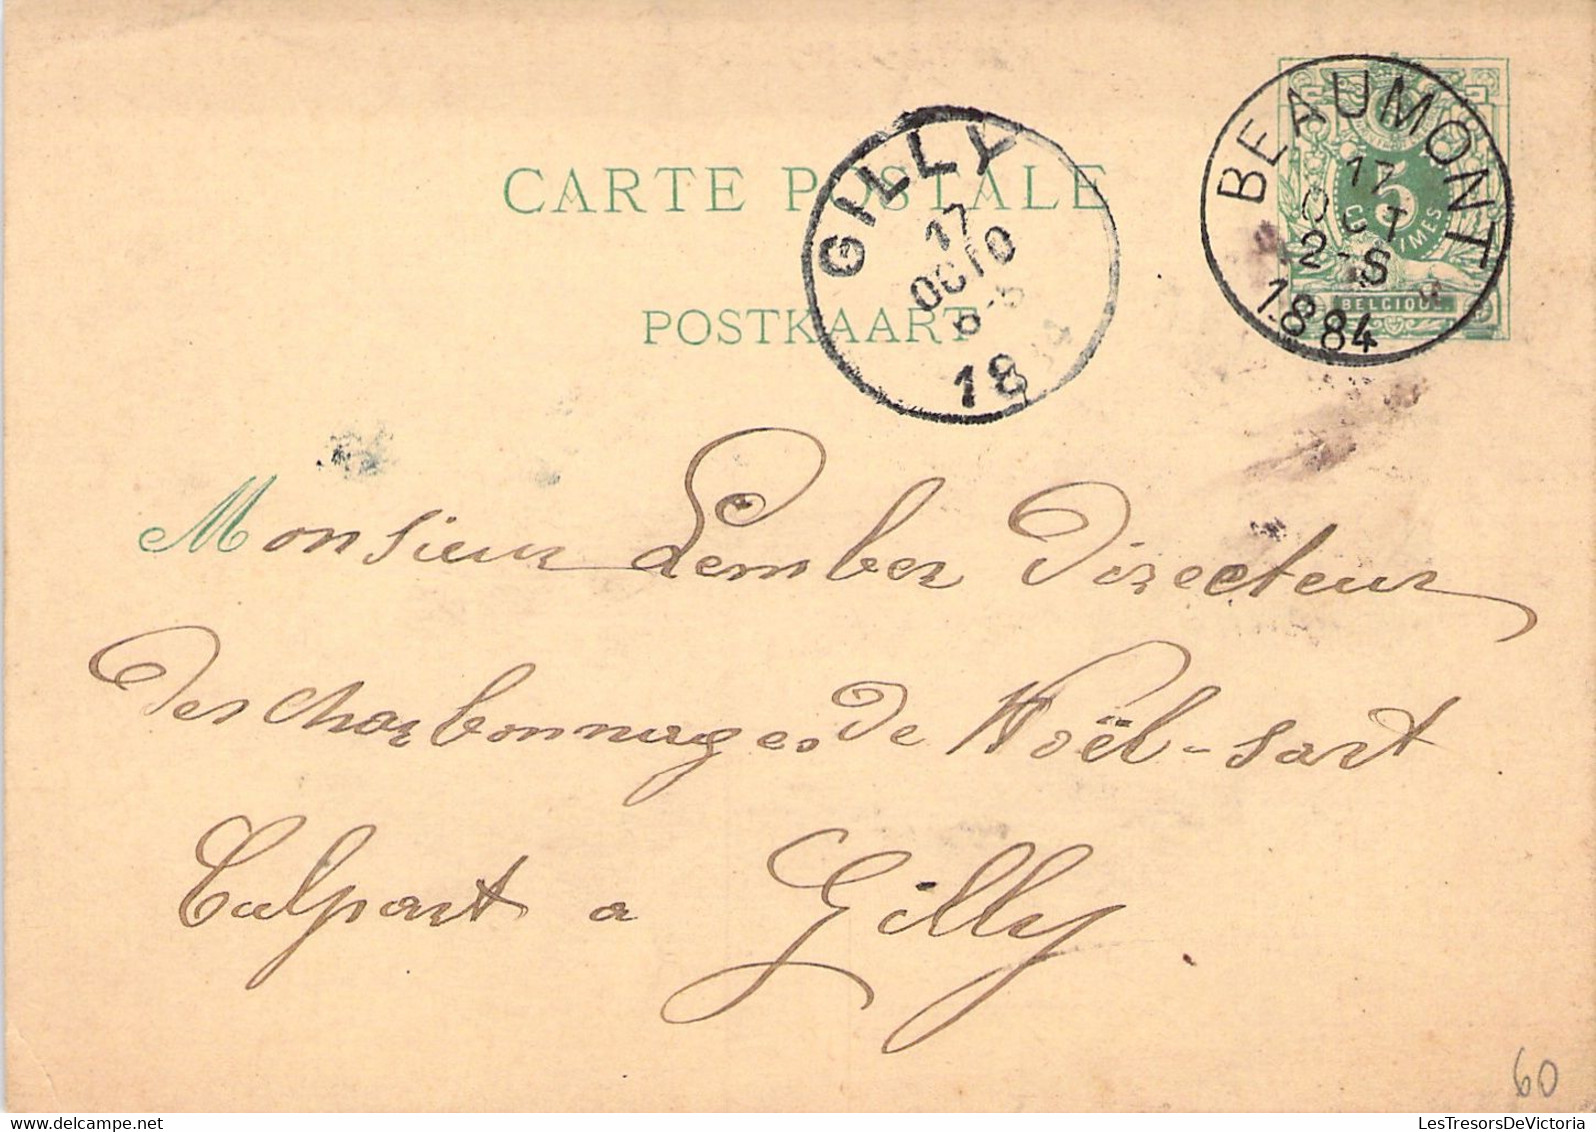 CARTE POSTALE
POSTKAART
GILLY
17
OCTO
18 84
BEAUMONT
17
OCT
2-S
1884
5
CENTIMES
BELGIQUE
Monsieur Lember Directeur
des charbonnages de Noël-sart
Culpart a Gilly.
60
LesTresorsDeVictoria